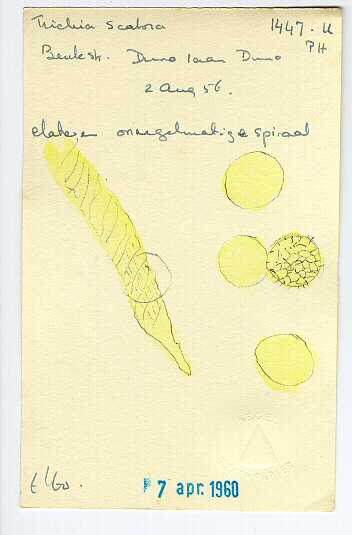 Trichia scabra 1447. U
PH
Beukestr. Duno laan Duno
2 Aug 56.
elateren onregelmatige spiraal
E'60.
7 apr. 1960